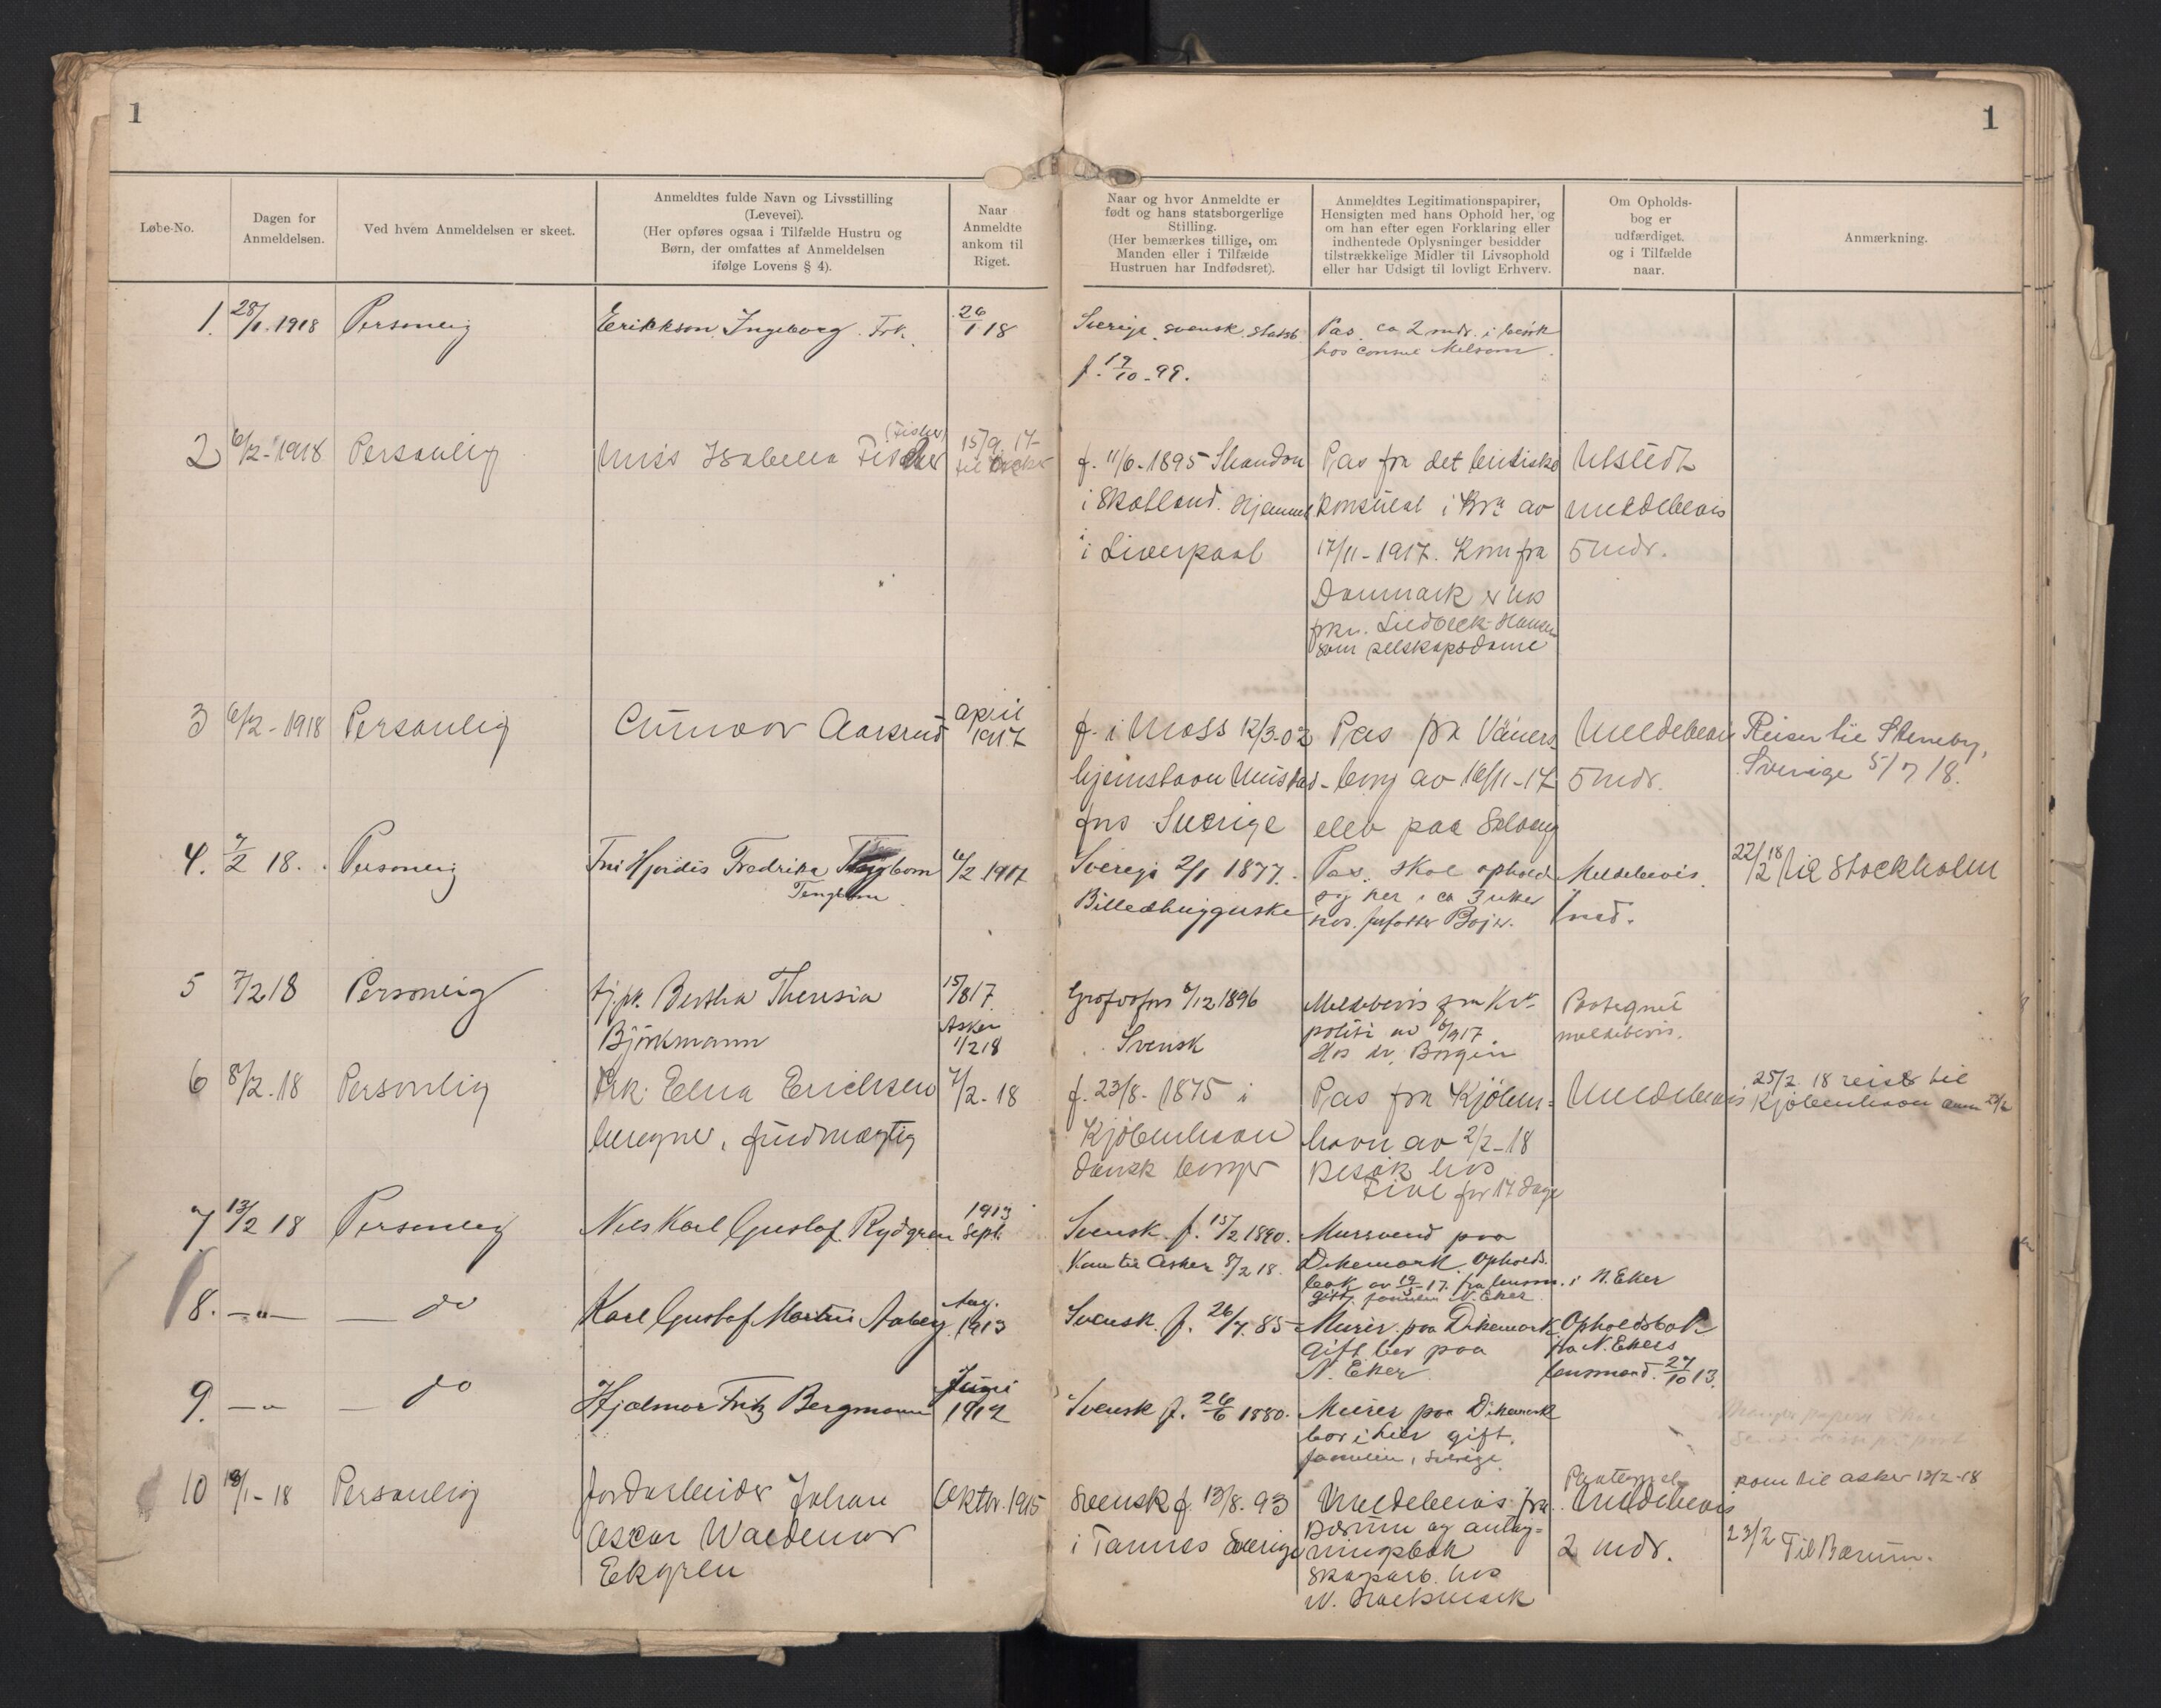 1
1
Løbe-No.
Dagen for
Anmeldelsen.
Ved hvem Anmeldelsen er skeet.
Anmeldtes fulde Navn og Livsstilling
(Levevei).
(Her opføres ogsaa i Tilfælde Hustru og
Børn, der omfattes af Anmeldelsen
ifølge Lovens § 4).
Naar
Anmeldte
ankom til
Riget.
Naar og hvor Anmeldte er
født og hans statsborgerlige
Stilling.
(Her bemærkes tillige, om
Manden eller i Tilfælde
Hustruen har Indfødsret).
Anmeldtes Legitimationspapirer,
Hensigten med hans Ophold her, og
om han efter egen Forklaring eller
indhentede Oplysninger besidder
tilstrækkelige Midler til Livsophold
eller har Udsigt til lovligt Erhverv.
Om Opholds-
bog er
udfærdiget,
og i Tilfælde
naar.
Anmærkning.
1. 28/1.1918 Personlig
Erikkson Ingeborg. Frk.
26/1 18
Sverige. svensk. statsb
f. 17/10-99.
Pas. ca 2 mdr. i besök
hos consul Melsom.
2 6/2-1918 Personlig
Miss Isabella Fischer
(Fisher)
15/9 17
til Asker
f. 11/6-1895 Shandon
i Skotland. Hjemme
i Liverpool
Pas fra det britiske
konsulat i Kra av
17/11-1917. Kom fra
Danmark er hos
som selskapsdame
Utstedt
meldebevis
5 mdr.
3 6/2-1918 Personlig
Gunvor Aarsrud
April
1917
f. i Moss 12/3-02
fns Sverige
Pas fra Väners-
borg av 16/11-17
elev paa Solvang
Meldebevis
5 mdr.
Reiser til Steneby,
Sverige 5/7 18.
4. 7/2 18. Personlig
Fru Hjördis Fredrika
Tengbom
6/2 1917
Sverige 2/1 1877.
Billedhuggerske
Pas. Skal opholde
sig her i ca 3 uker
hos forfatter Bojer.
Meldebevis.
1 md.
22/2 18 til Stockholm
5 7/2 18 Personlig
tj.pk. Bertha Theresia
Björkmann
15/8 17.
Asker
1/2 18
6/12 1896
Svensk
Meldebevis fra Kr.
politi av 8/9 17
Hos dr. Borgen
Paategnet
meldebevis.
6 8/2-18 Personlig
Frk. Elna Erichsen
7/2-18
f. 23/8-1875 i
Kjöbenhavn
dansk borger
Pas fra Kjöben-
havn av 2/2-18
Besøk hos
for 14 dage
Meldebevis
25/2 18 reist til
Kjöbenhavn
7 13/2 18 Personlig
Nils Karl Gustaf Rydgren
1913
Sept.
Svensk f. 15/2 1890.
Kom til Asker 8/2 18.
Mursvend paa
Dikemark. Opholds.
bok av 19/3-17. fra lensm. i N. Eker
gift, familien N. Eker
8. —"— — do
Karl Gustaf Martin Aaberg
Aug.
1913
Svensk. f. 26/7. 85
Murer. paa Dikemark
Gift bor paa
N. Eker
Opholdsbok
fra N. Ekers
lensmand. 27/10 13.
9. —"— — do
Hjalmar Fritz Bergmann
Juni
1912
Svensk f. 26/6 1880.
Murer paa Dikemark
bor i hier gift.
familien i Sverige
10 18/1-18 Personlig
Jordarbeider Johan
Oscar Waldemar
Ekgren
Oktbr. 1915
Svensk f. 13/8. 93
i Tannes Sverige
Meldebevis fra
Bærum og antag-
ningsbok
Skogsarb. hos
Paategnet
Meldebevis
2 mdr.
kom til Asker 13/2-18
23/2 Til Bærum.